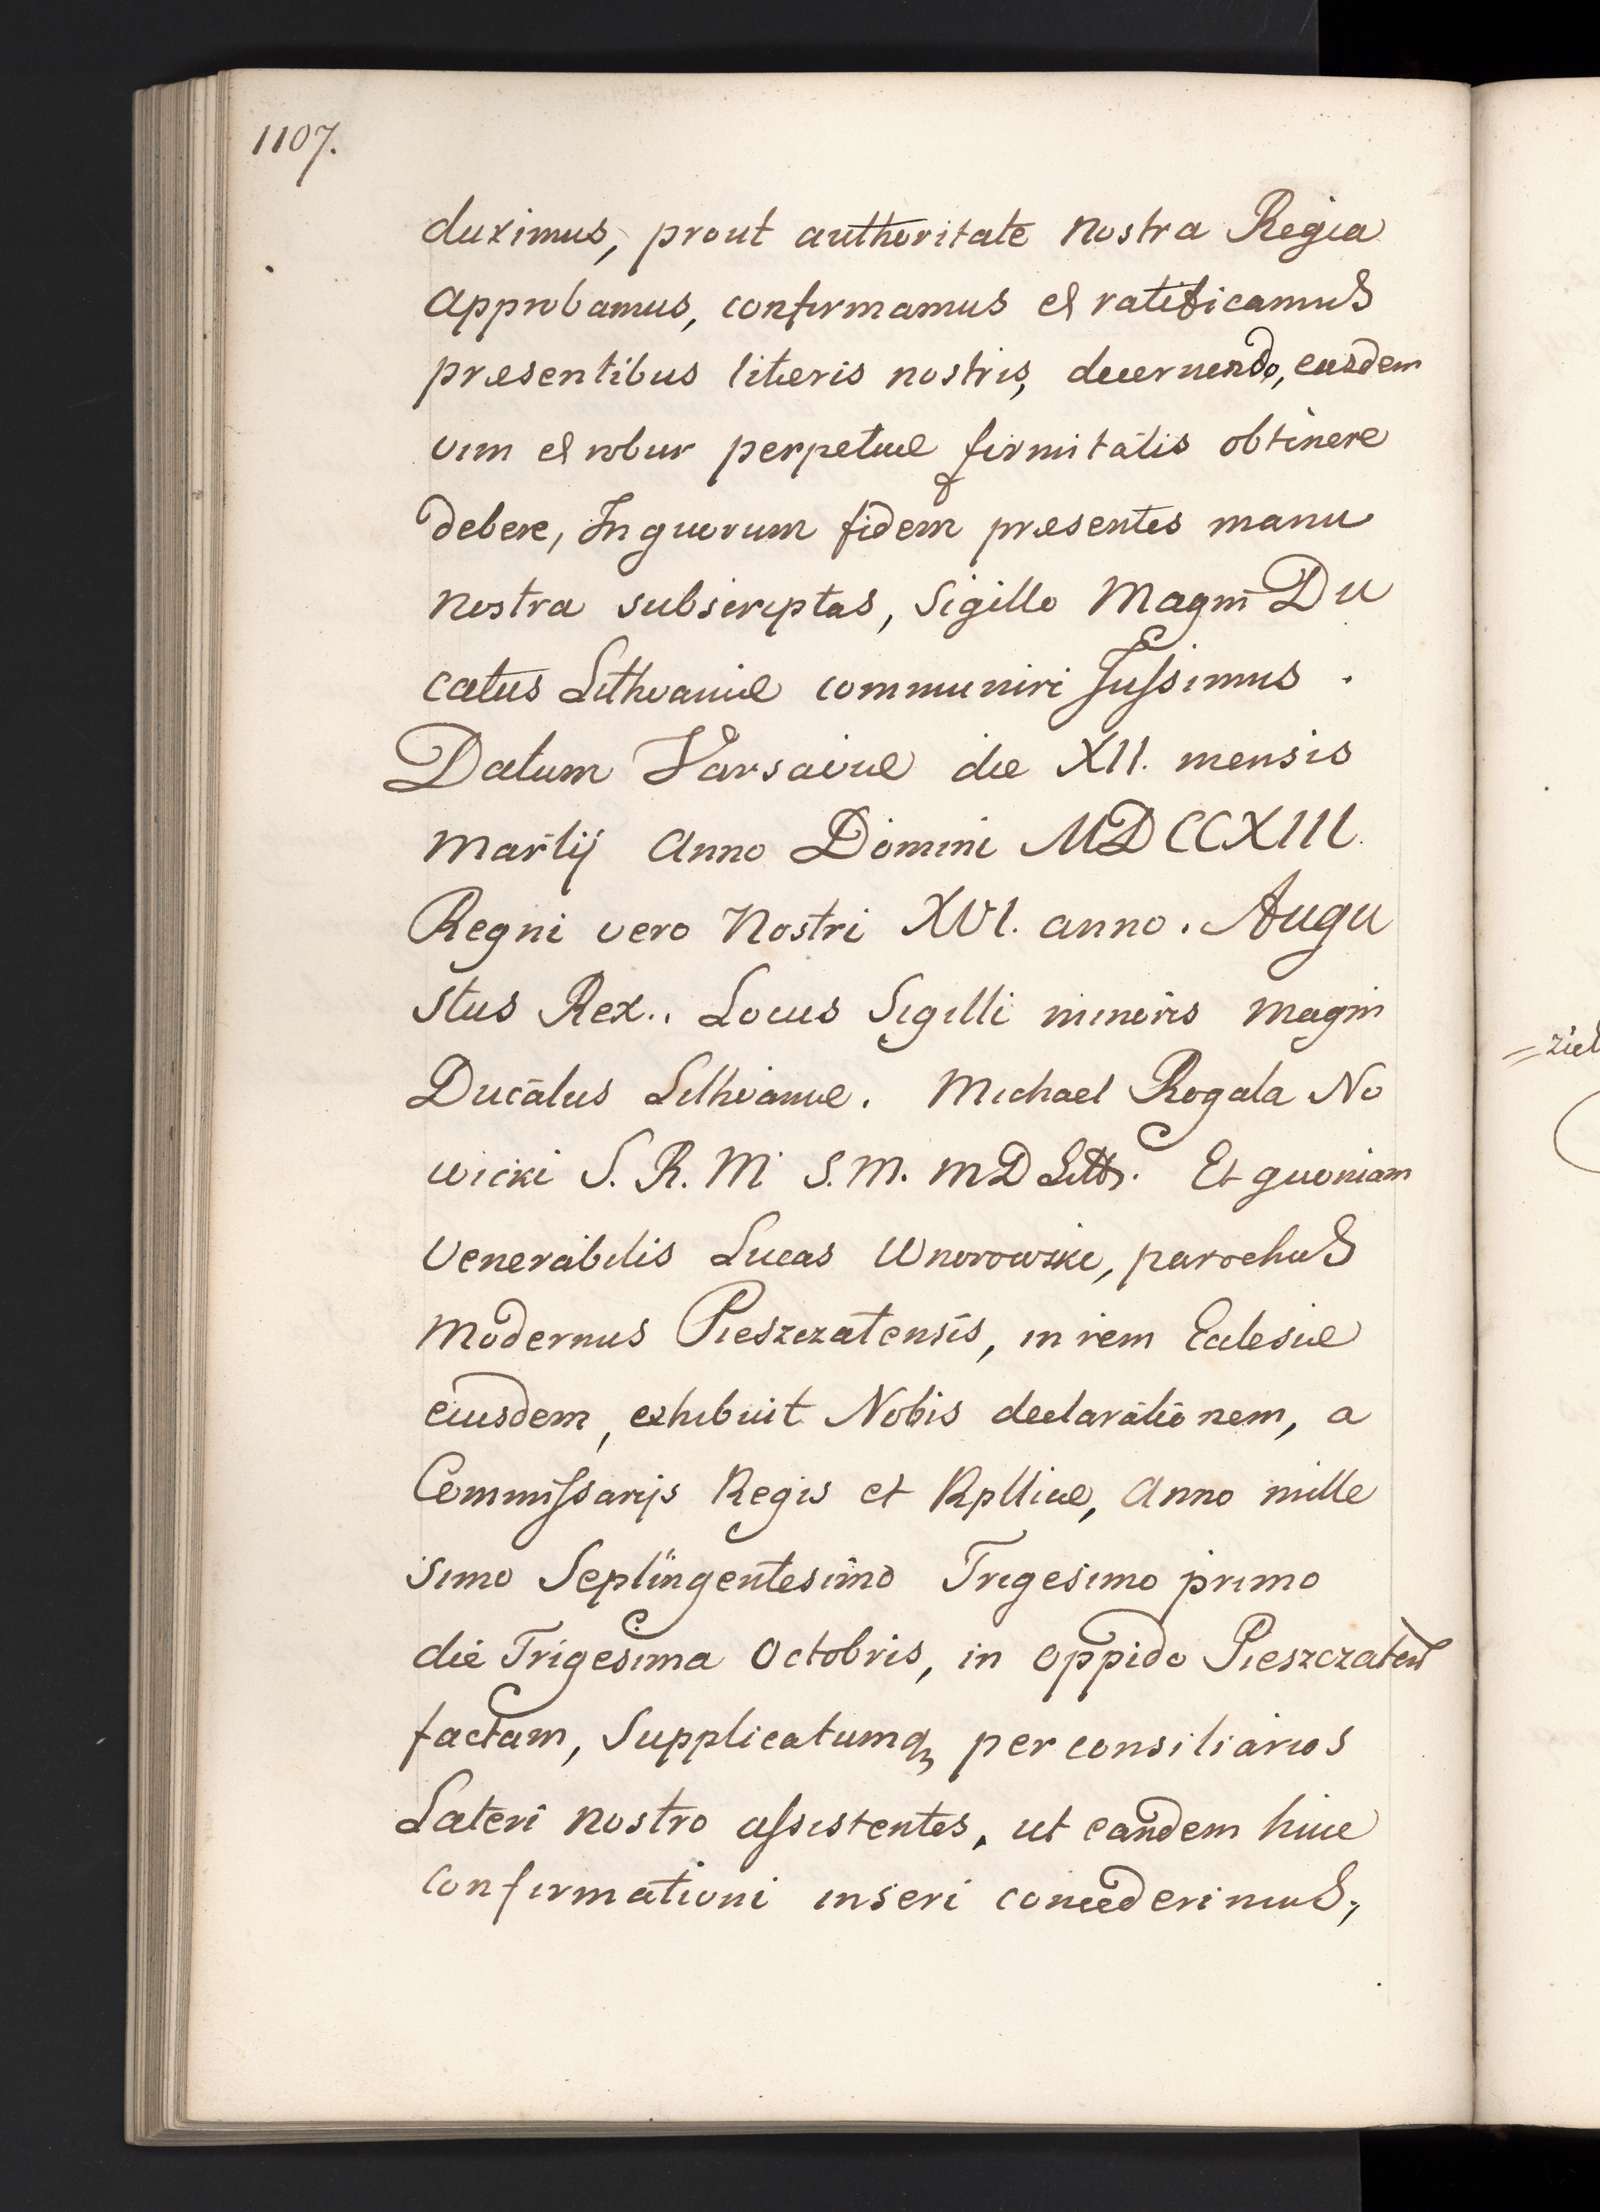 1107.
duximus, prout authoritate nostra Regia
approbamus, confirmamus et ratificamus
præsentibus literis nostris, decernendo, easdem
vim et robur perpetuæ firmitatis obtinere
debere, In quorum fidem præsentes manu
nostra subscriptas, Sigillo Magni Du
catus Lithvaniæ communiri Jussimus.
Datum Varsaviæ die XII. mensis
Martij Anno Domini MDCCXIII.
Regni vero Nostri XVI. anno. Augu
stus Rex.. Locus Sigilli minoris Magni
Ducatus Lithvaniæ. Michael Rogala No
wicki S. R. M S. M. M D Litt. Et quoniam
Venerabilis Lucas Wnorowski, parochus
modernus Pieszczatensis, in rem Eclesiæ
eiusdem, exhibuit Nobis declarationem, a
Commissarijs Regis et Rplicæ, Anno mille
simo Septingentesimo Trigesimo primo
die Trigesima Octobris, in oppido Pieszczaten
factam, Supplicatumq per consiliarios
Lateri nostro assistentes, ut eandem huic
confirmationi inseri concederimus,